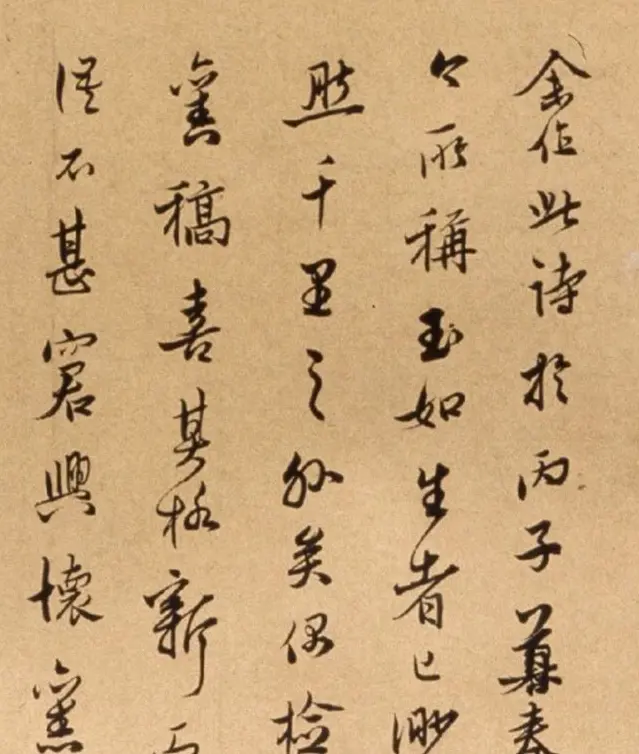 余作此詩於丙子暮春
今所稱玉如生者已渺
然千里之外矣偶檢
舊稿喜其格新而
語不甚窘興懷舊